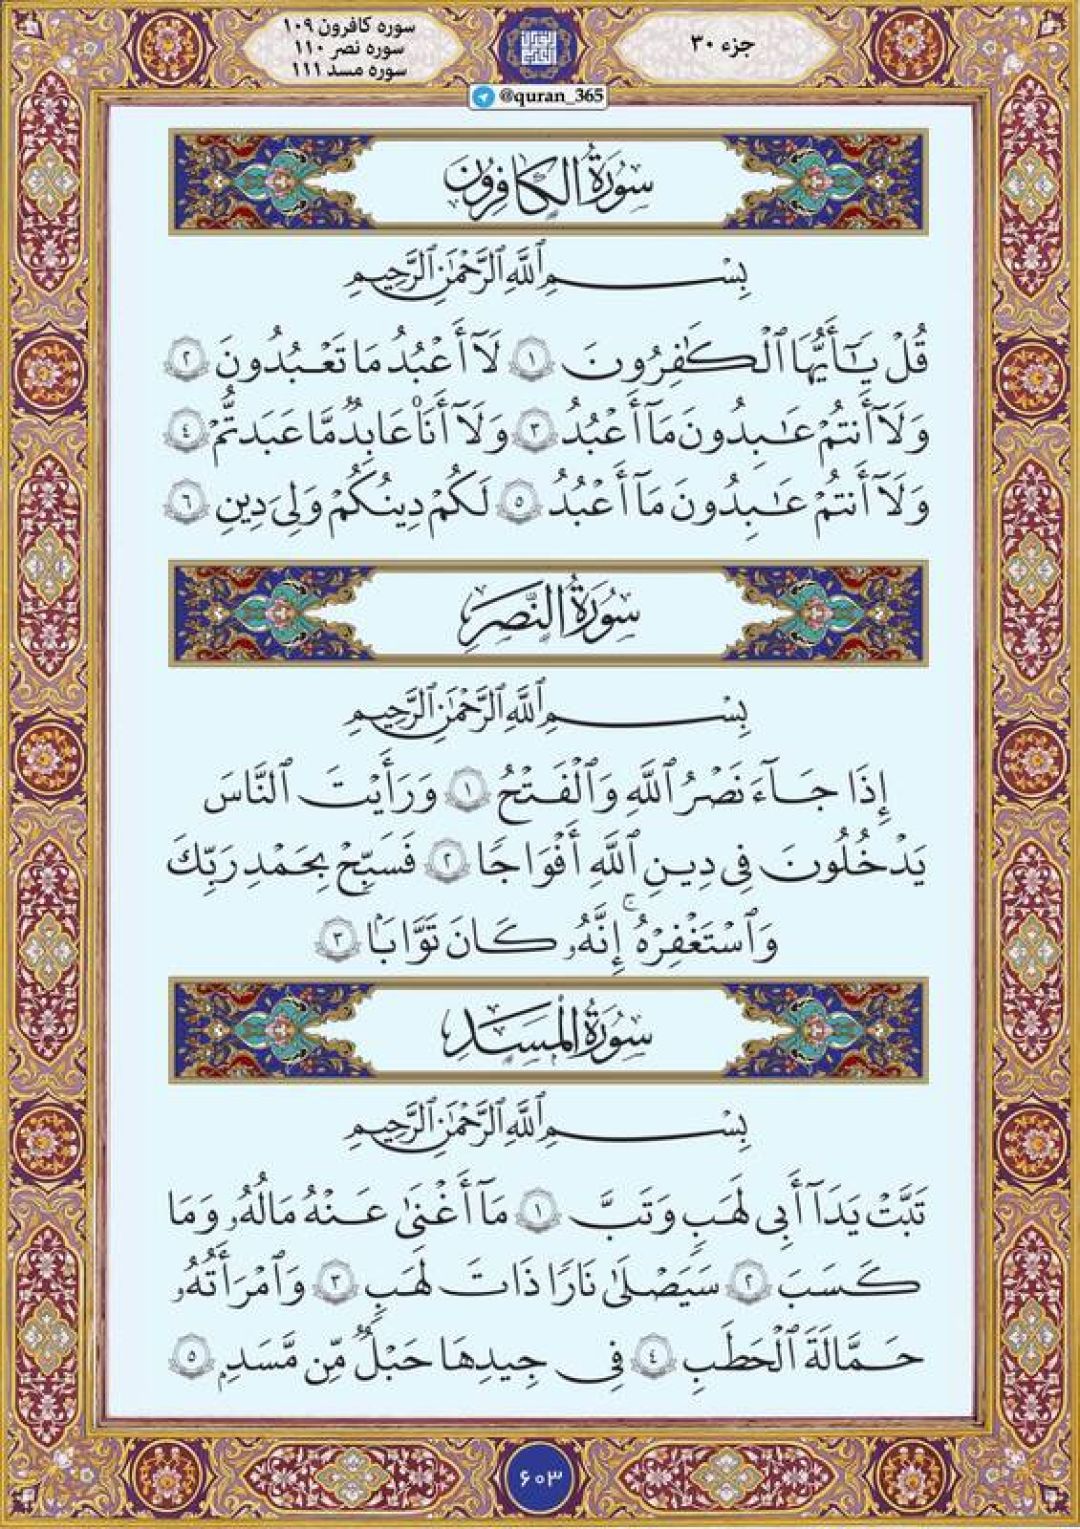 جزء ۳۰
سوره کافرون ۱۰۹
سوره نصر ۱۱۰
سوره مسد ۱۱۱
@quran_365
سُورَةُ الكَافِرُونَ
بِسْمِ ٱللَّهِ ٱلرَّحْمَٰنِ ٱلرَّحِيمِ
قُلْ يَـٰٓأَيُّهَا ٱلْكَـٰفِرُونَ ١ لَآ أَعْبُدُ مَا تَعْبُدُونَ ٢
وَلَآ أَنتُمْ عَـٰبِدُونَ مَآ أَعْبُدُ ٣ وَلَآ أَنَا۠ عَابِدٌ مَّا عَبَدتُّمْ ٤
وَلَآ أَنتُمْ عَـٰبِدُونَ مَآ أَعْبُدُ ٥ لَكُمْ دِينُكُمْ وَلِىَ دِينِ ٦
سُورَةُ النَّصْرِ
بِسْمِ ٱللَّهِ ٱلرَّحْمَٰنِ ٱلرَّحِيمِ
إِذَا جَآءَ نَصْرُ ٱللَّهِ وَٱلْفَتْحُ ١ وَرَأَيْتَ ٱلنَّاسَ
يَدْخُلُونَ فِى دِينِ ٱللَّهِ أَفْوَاجًا ٢ فَسَبِّحْ بِحَمْدِ رَبِّكَ
وَٱسْتَغْفِرْهُ ۚ إِنَّهُۥ كَانَ تَوَّابًۢا ٣
سُورَةُ المَسَدِ
بِسْمِ ٱللَّهِ ٱلرَّحْمَٰنِ ٱلرَّحِيمِ
تَبَّتْ يَدَآ أَبِى لَهَبٍ وَتَبَّ ١ مَآ أَغْنَىٰ عَنْهُ مَالُهُۥ وَمَا
كَسَبَ ٢ سَيَصْلَىٰ نَارًا ذَاتَ لَهَبٍ ٣ وَٱمْرَأَتُهُۥ
حَمَّالَةَ ٱلْحَطَبِ ٤ فِى جِيدِهَا حَبْلٌ مِّن مَّسَدٍۭ ٥
۶۰۳